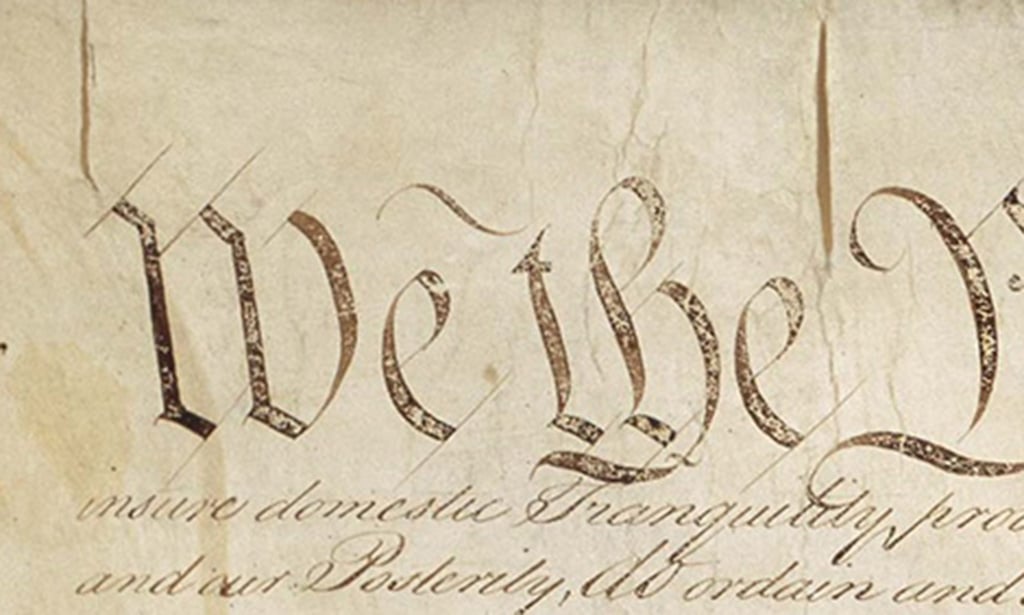 We the P
insure domestic Tranquility, prov
and our Posterity, do ordain and